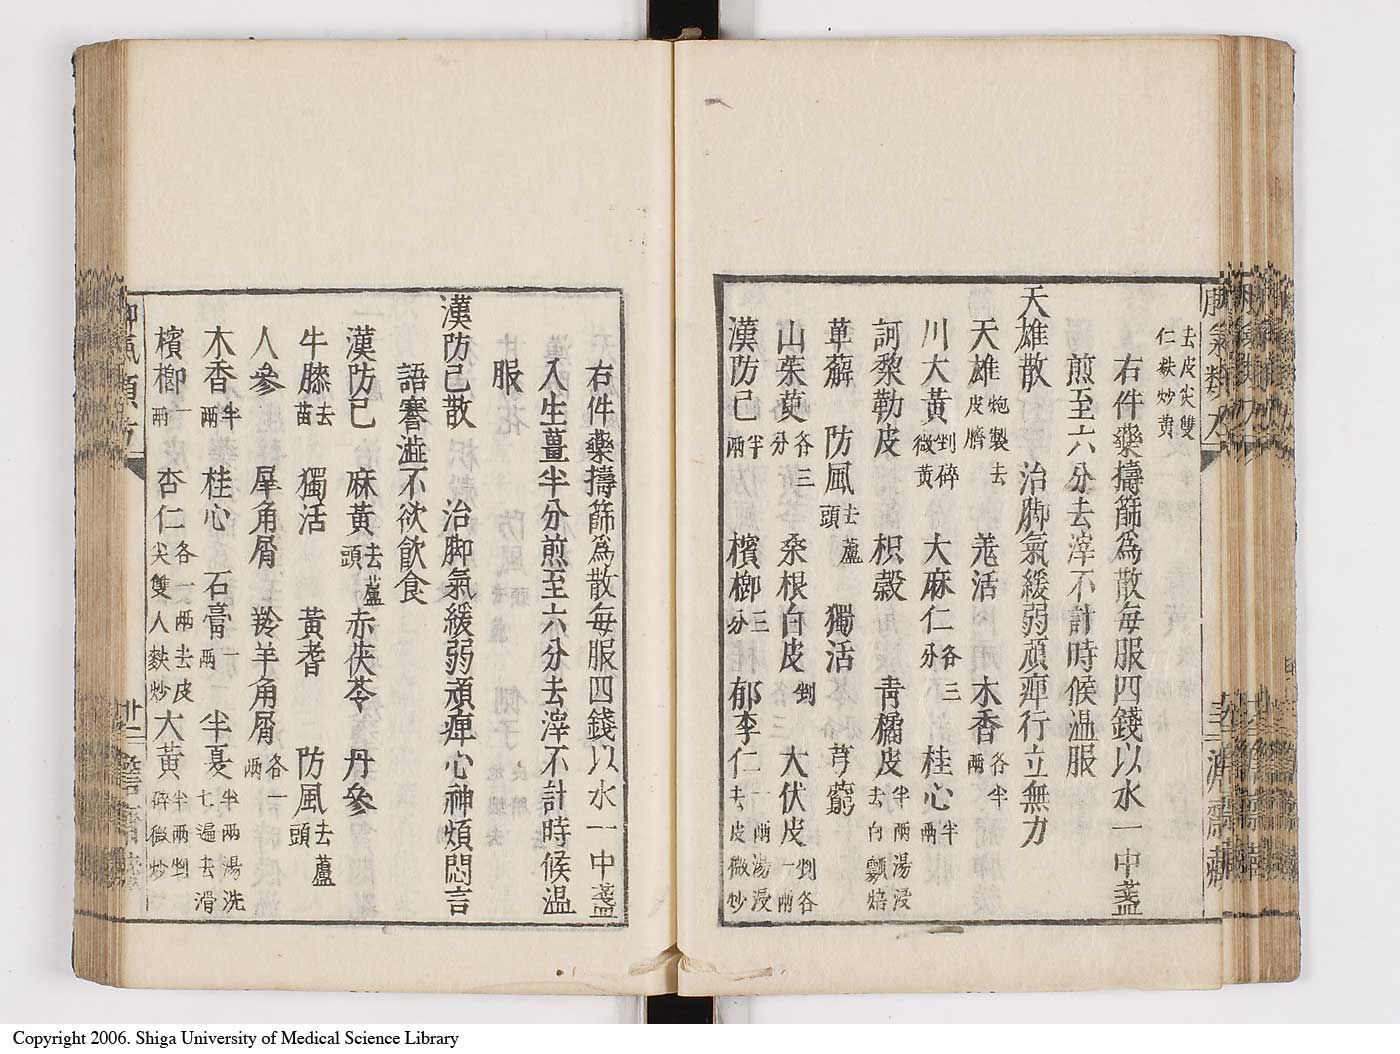 去皮尖雙
仁麩炒黃
右件藥擣篩為散每服四錢以水一中盞
煎至六分去滓不計時候温服
天雄散　治脚氣緩弱頑痺行立無力
天雄炮製去皮臍　羗活　木香各半兩
川大黃剉碎微黃　大麻仁各三分　桂心半兩
訶黎勒皮　枳殼　青橘皮半兩湯浸去白瓤焙
萆薢　防風去蘆頭　獨活　芎藭
山茱萸各三分　桑根白皮剉　大伏皮剉各一兩
漢防己半兩　檳榔三分　郁李仁一兩湯浸去皮微炒
右件藥擣篩為散每服四錢以水一中盞
入生薑半分煎至六分去滓不計時候温
服
漢防己散　治脚氣緩弱頑痺心神煩悶言
語謇澁不欲飲食
漢防己　麻黃去蘆頭　赤茯苓　丹參
牛膝去苗　獨活　黃耆　防風去蘆頭
人參　犀角屑　羚羊角屑各一兩
木香半兩　桂心　石膏一兩　半夏半兩湯洗七遍去滑
檳榔一兩　杏仁各一兩去皮尖雙人麩炒　大黃半兩剉碎微炒
Copyright 2006. Shiga University of Medical Science Library